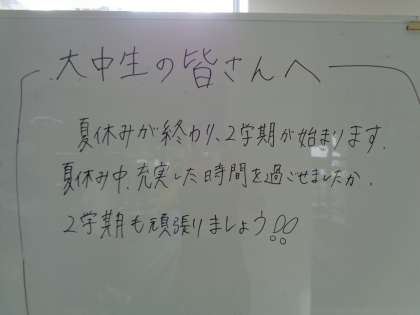 大中生の皆さんへ
夏休みが終わり、2学期が始まります.
夏休み中、充実した時間を過ごせましたか.
2学期も頑張りましょう!!